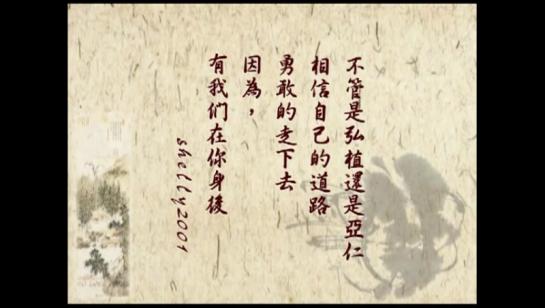 不管是弘植還是亞仁
相信自己的道路
勇敢的走下去
因為，
有我们在你身後
shelly2001